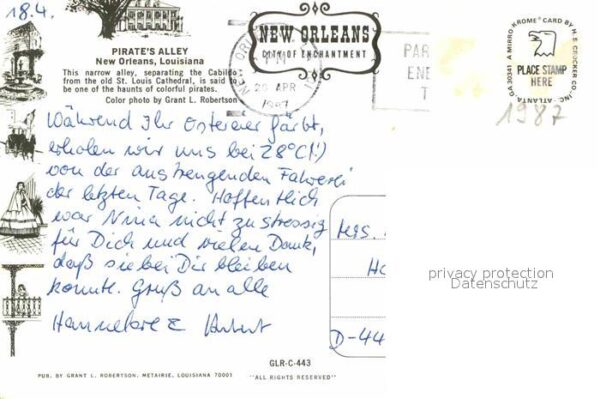 18.4.
PIRATE'S ALLEY
New Orleans, Louisiana
This narrow alley, separating the Cabildo
from the old St. Louis Cathedral, is said to
be one of the haunts of colorful pirates.
Color photo by Grant L. Robertson
NEW ORLEANS
CITY OF ENCHANTMENT
NEW ORL
PM
20 APR
1987
PAR
ENE
T
A MIRRO KROME CARD BY H. S. CROCKER CO., INC. ATLANTA, GA 30341
PLACE STAMP
HERE
1987
Während Ihr Ostereier färbt,
erholen wir uns bei 28°C(!)
von der anstrengenden Fahrerei
der letzten Tage. Hoffentlich
war Nina nicht zu stressig
für Dich und vielen Dank,
daß sie bei Dir bleiben
konnte. Gruß an alle
Hannelore & Hubert
Ho
D-44
privacy protection
Datenschutz
GLR-C-443
PUB. BY GRANT L. ROBERTSON, METAIRIE, LOUISIANA 70001
"ALL RIGHTS RESERVED"